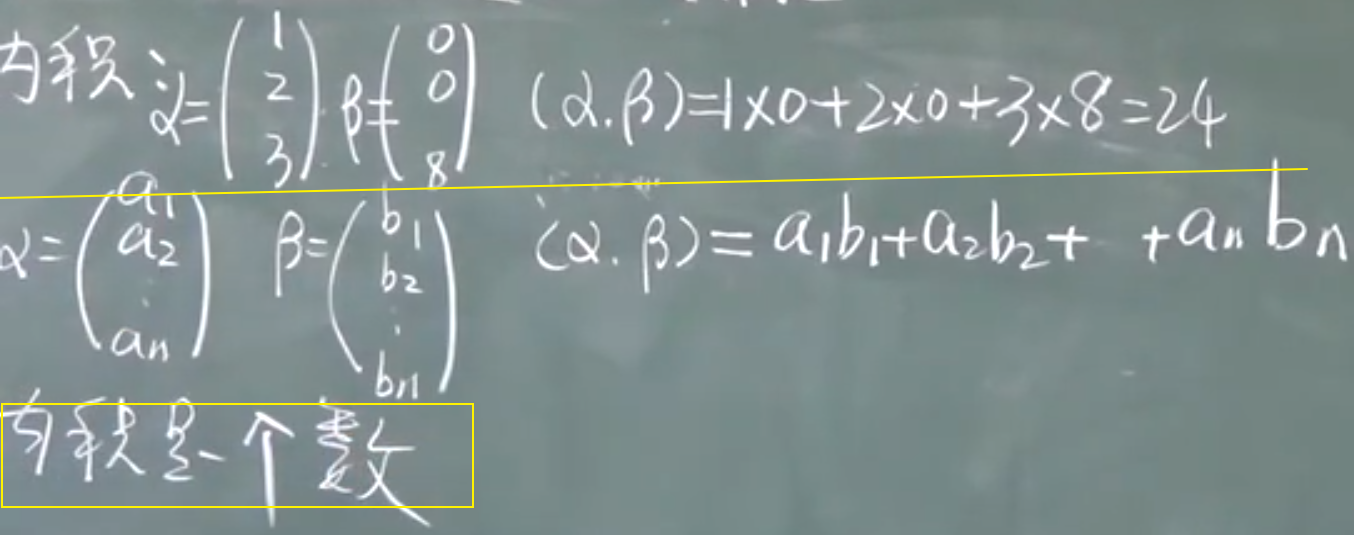 内积 α=(1 2 3). β=(0 0 8) (α.β)=1×0+2×0+3×8=24
α=(a₁ a₂ . aₙ) β=(b₁ b₂ . bₙ) (α.β)=a₁b₁+a₂b₂+ +aₙbₙ
内积是一个数